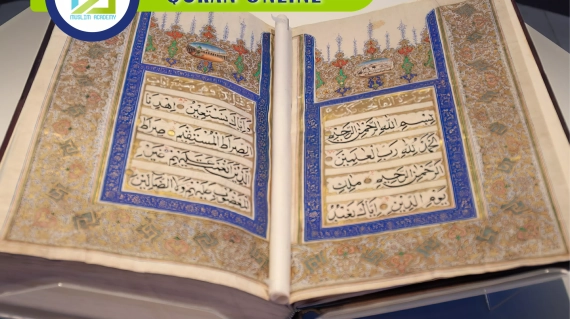 MUSLIM ACADEMY
QURAN ONLINE
بِسْمِ اللهِ الرَّحْمٰنِ الرَّحِيمِ
اَلْحَمْدُ لِلّٰهِ رَبِّ الْعَالَمِينَ
الرَّحْمٰنِ الرَّحِيمِ مَالِكِ
يَوْمِ الدِّينِ اِيَّاكَ نَعْبُدُ
وَاِيَّاكَ نَسْتَعِينُ اِهْدِنَا
الصِّرَاطَ الْمُسْتَقِيمَ صِرَاطَ
الَّذِينَ اَنْعَمْتَ عَلَيْهِمْ غَيْرِ
الْمَغْضُوبِ عَلَيْهِمْ وَلَا الضَّالِّينَ